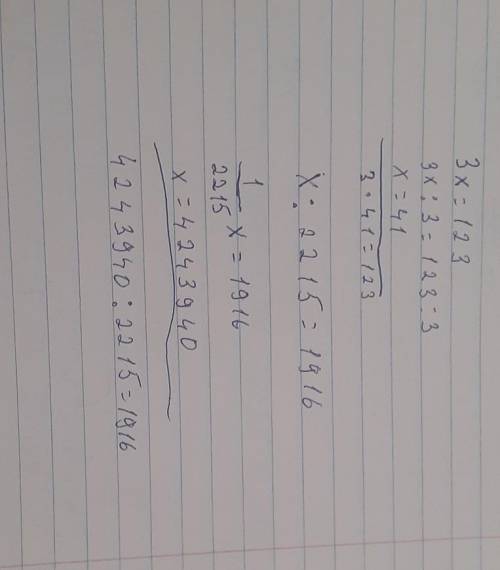 3x = 123
3x : 3 = 123 : 3
x = 41
3 · 41 = 123
x : 2215 = 1916
1/2215 x = 1916
x = 4243940
4243940 : 2215 = 1916